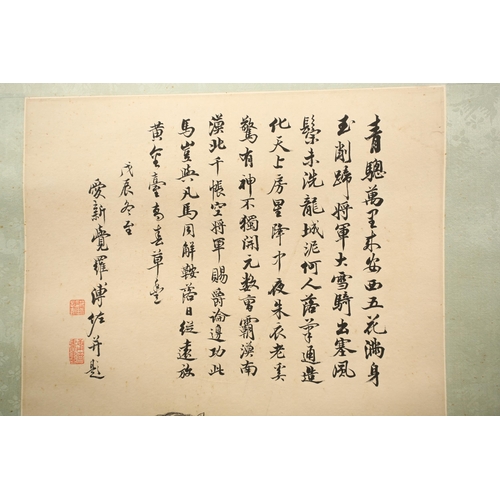 青驄萬里来安西五花滿身
玉削蹄將軍大雪騎出塞風
鬃未洗龍城泥何人落筆通造
化天上房星降中夜朱衣老奚
驚有神不獨開元数曹霸漠南
漠北千帳空將軍賜爵論邊功此
馬豈與凡馬同解鞍落日從遠放
黄金臺高春草豐
戊辰冬至
愛新覺羅溥佐并題